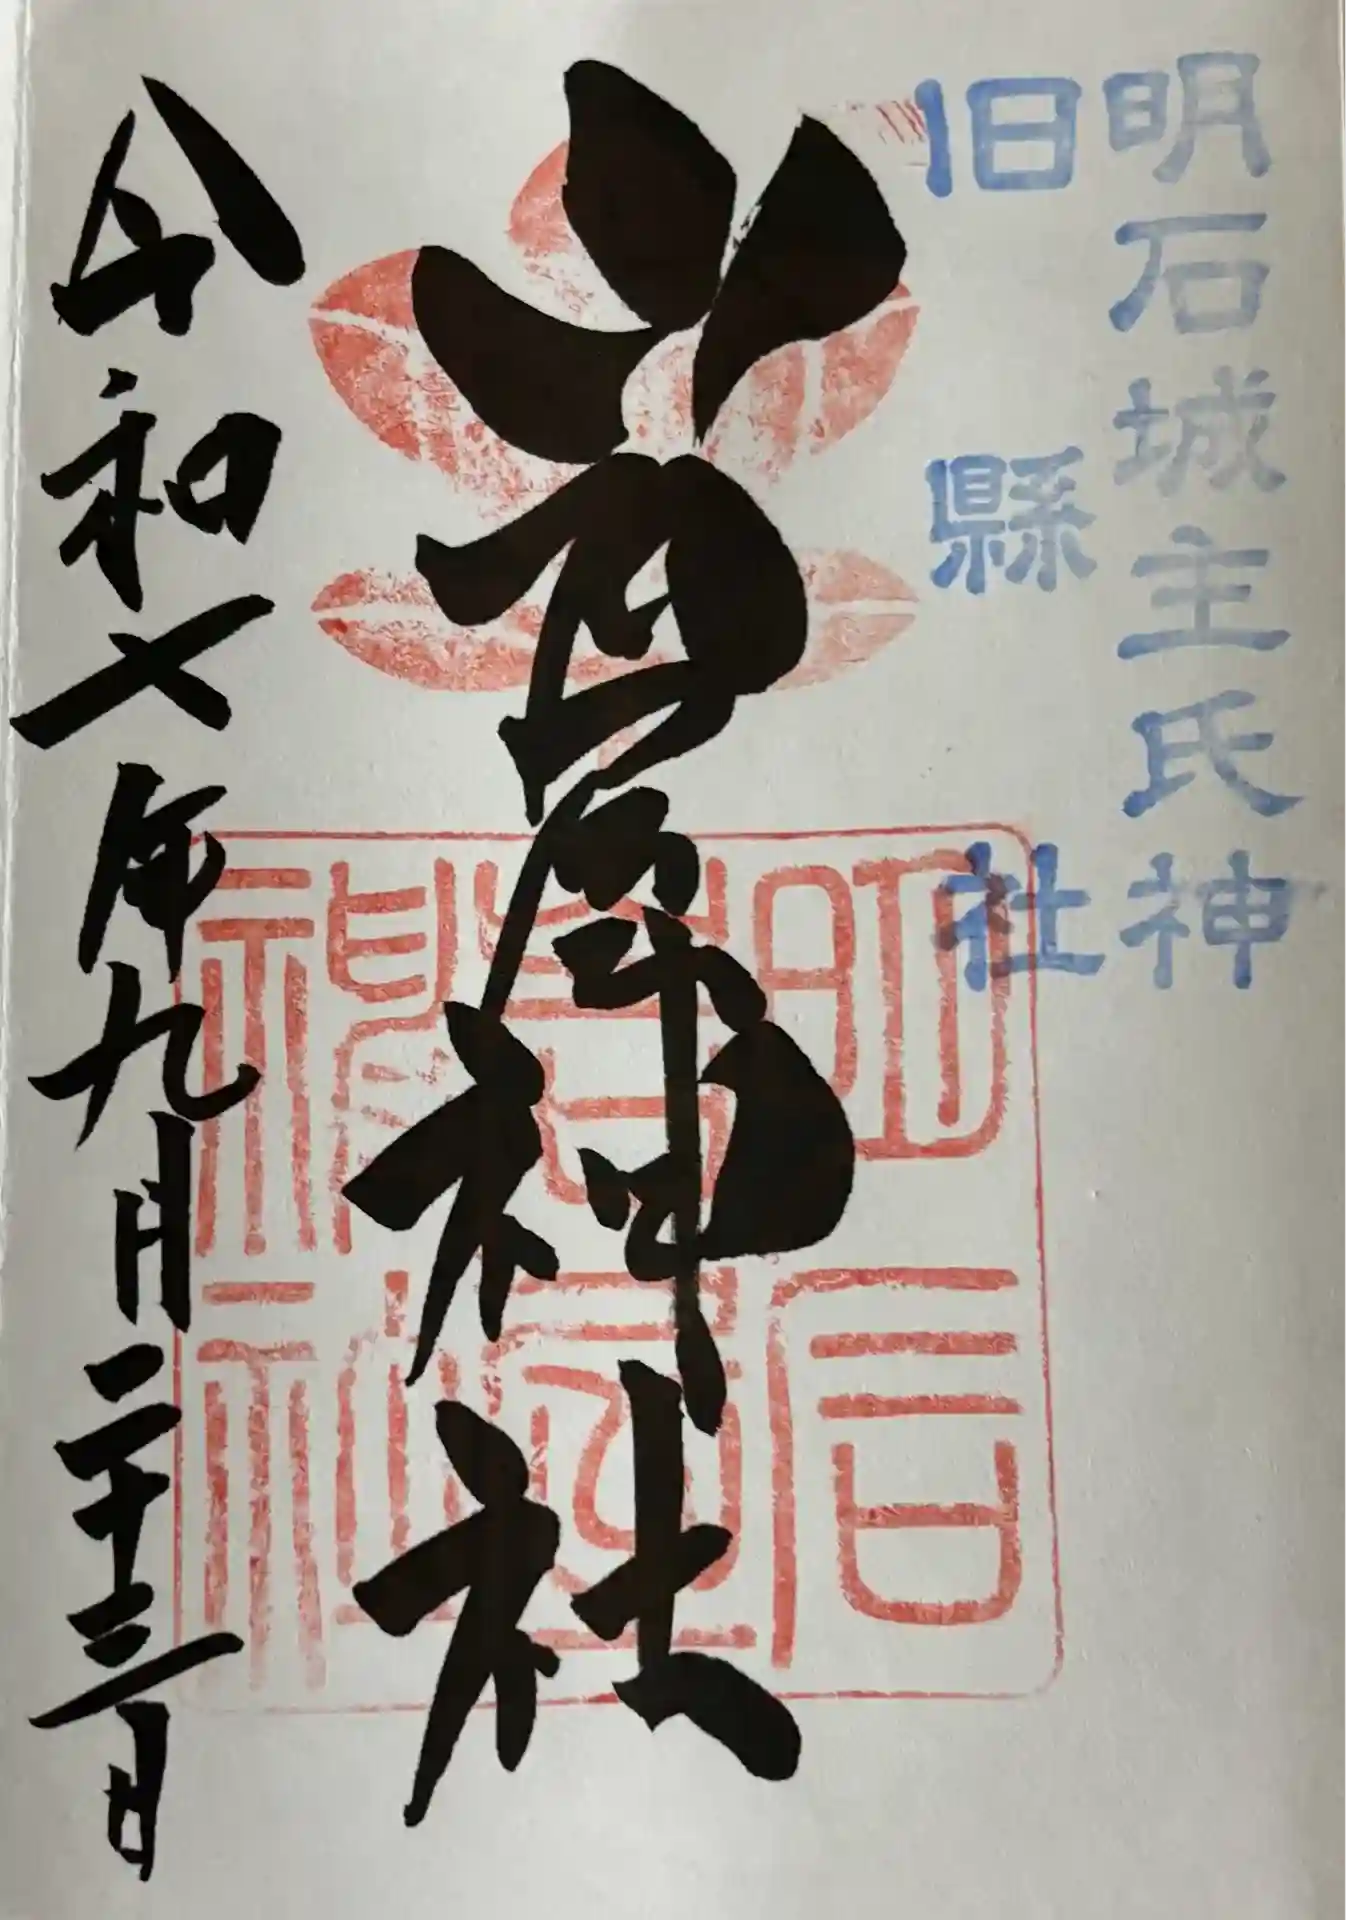 明石城主氏神
旧縣社
岩屋神社
令和七年九月二十三日
明石
岩屋
神社